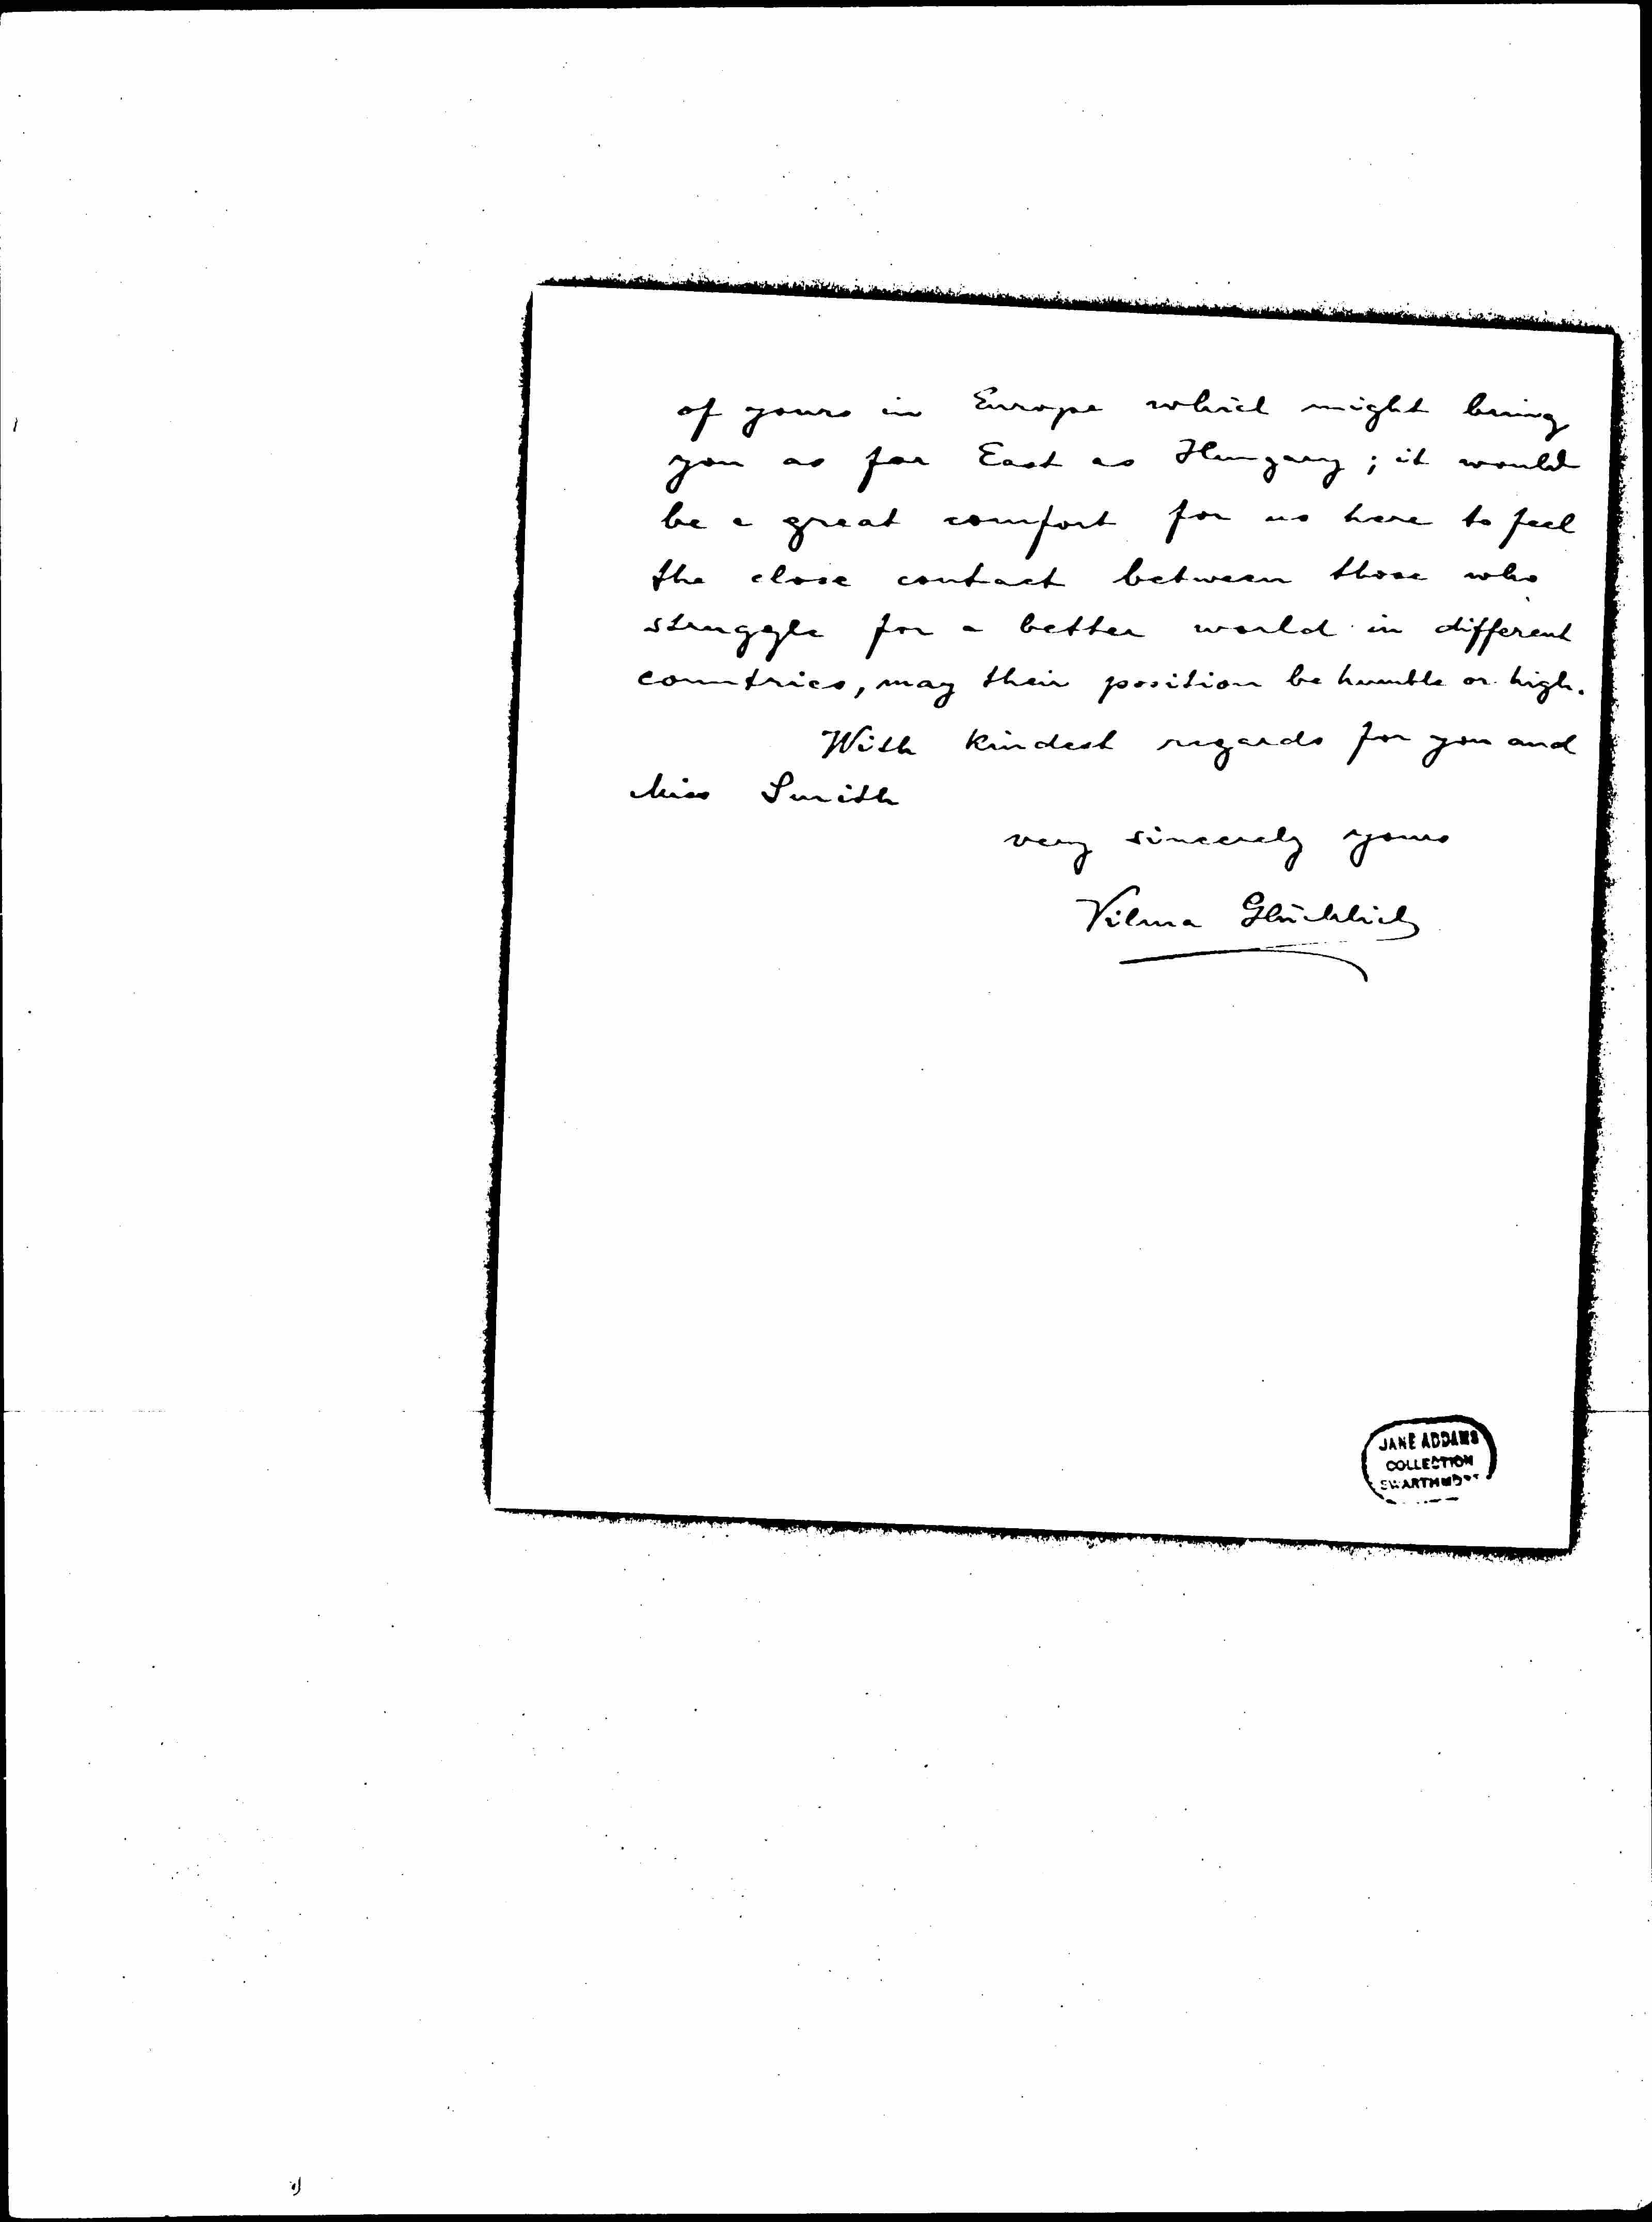 of yours in Europe which might bring
you as far East as Hungary ; it would
be a great comfort for us here to feel
the close contact between those who
struggle for a better world in different
countries, may their position be humble or high.
With kindest regards for you and
Miss Smith
very sincerely yours
Vilma Glücklich
JANE ADDAMS
COLLECTION
SWARTHMORE